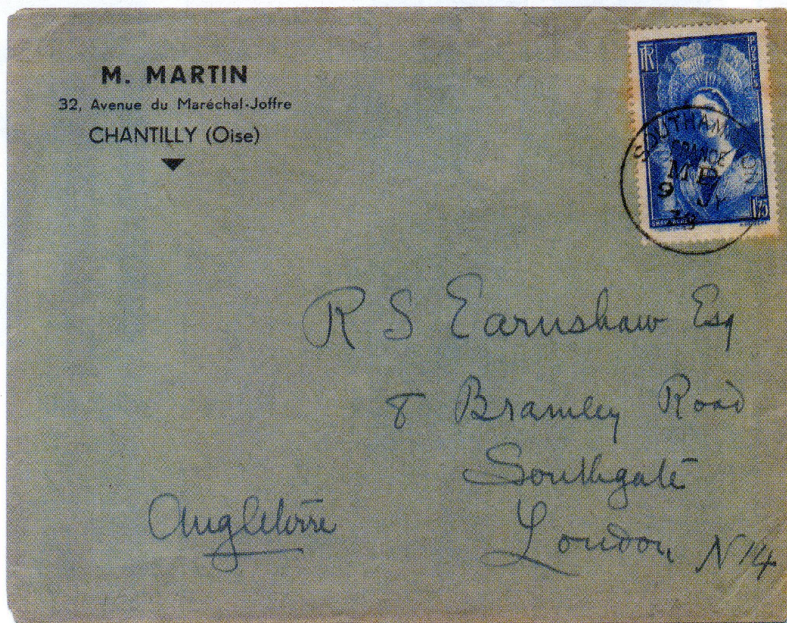 M. MARTIN
32, Avenue du Maréchal-Joffre
CHANTILLY (Oise)
RF
POSTES
SOUTHAM
FRANCE
M.B
9 JY
38
R S Earnshaw Esq
8 Bramley Road
Southgate
London N14
Angleterre